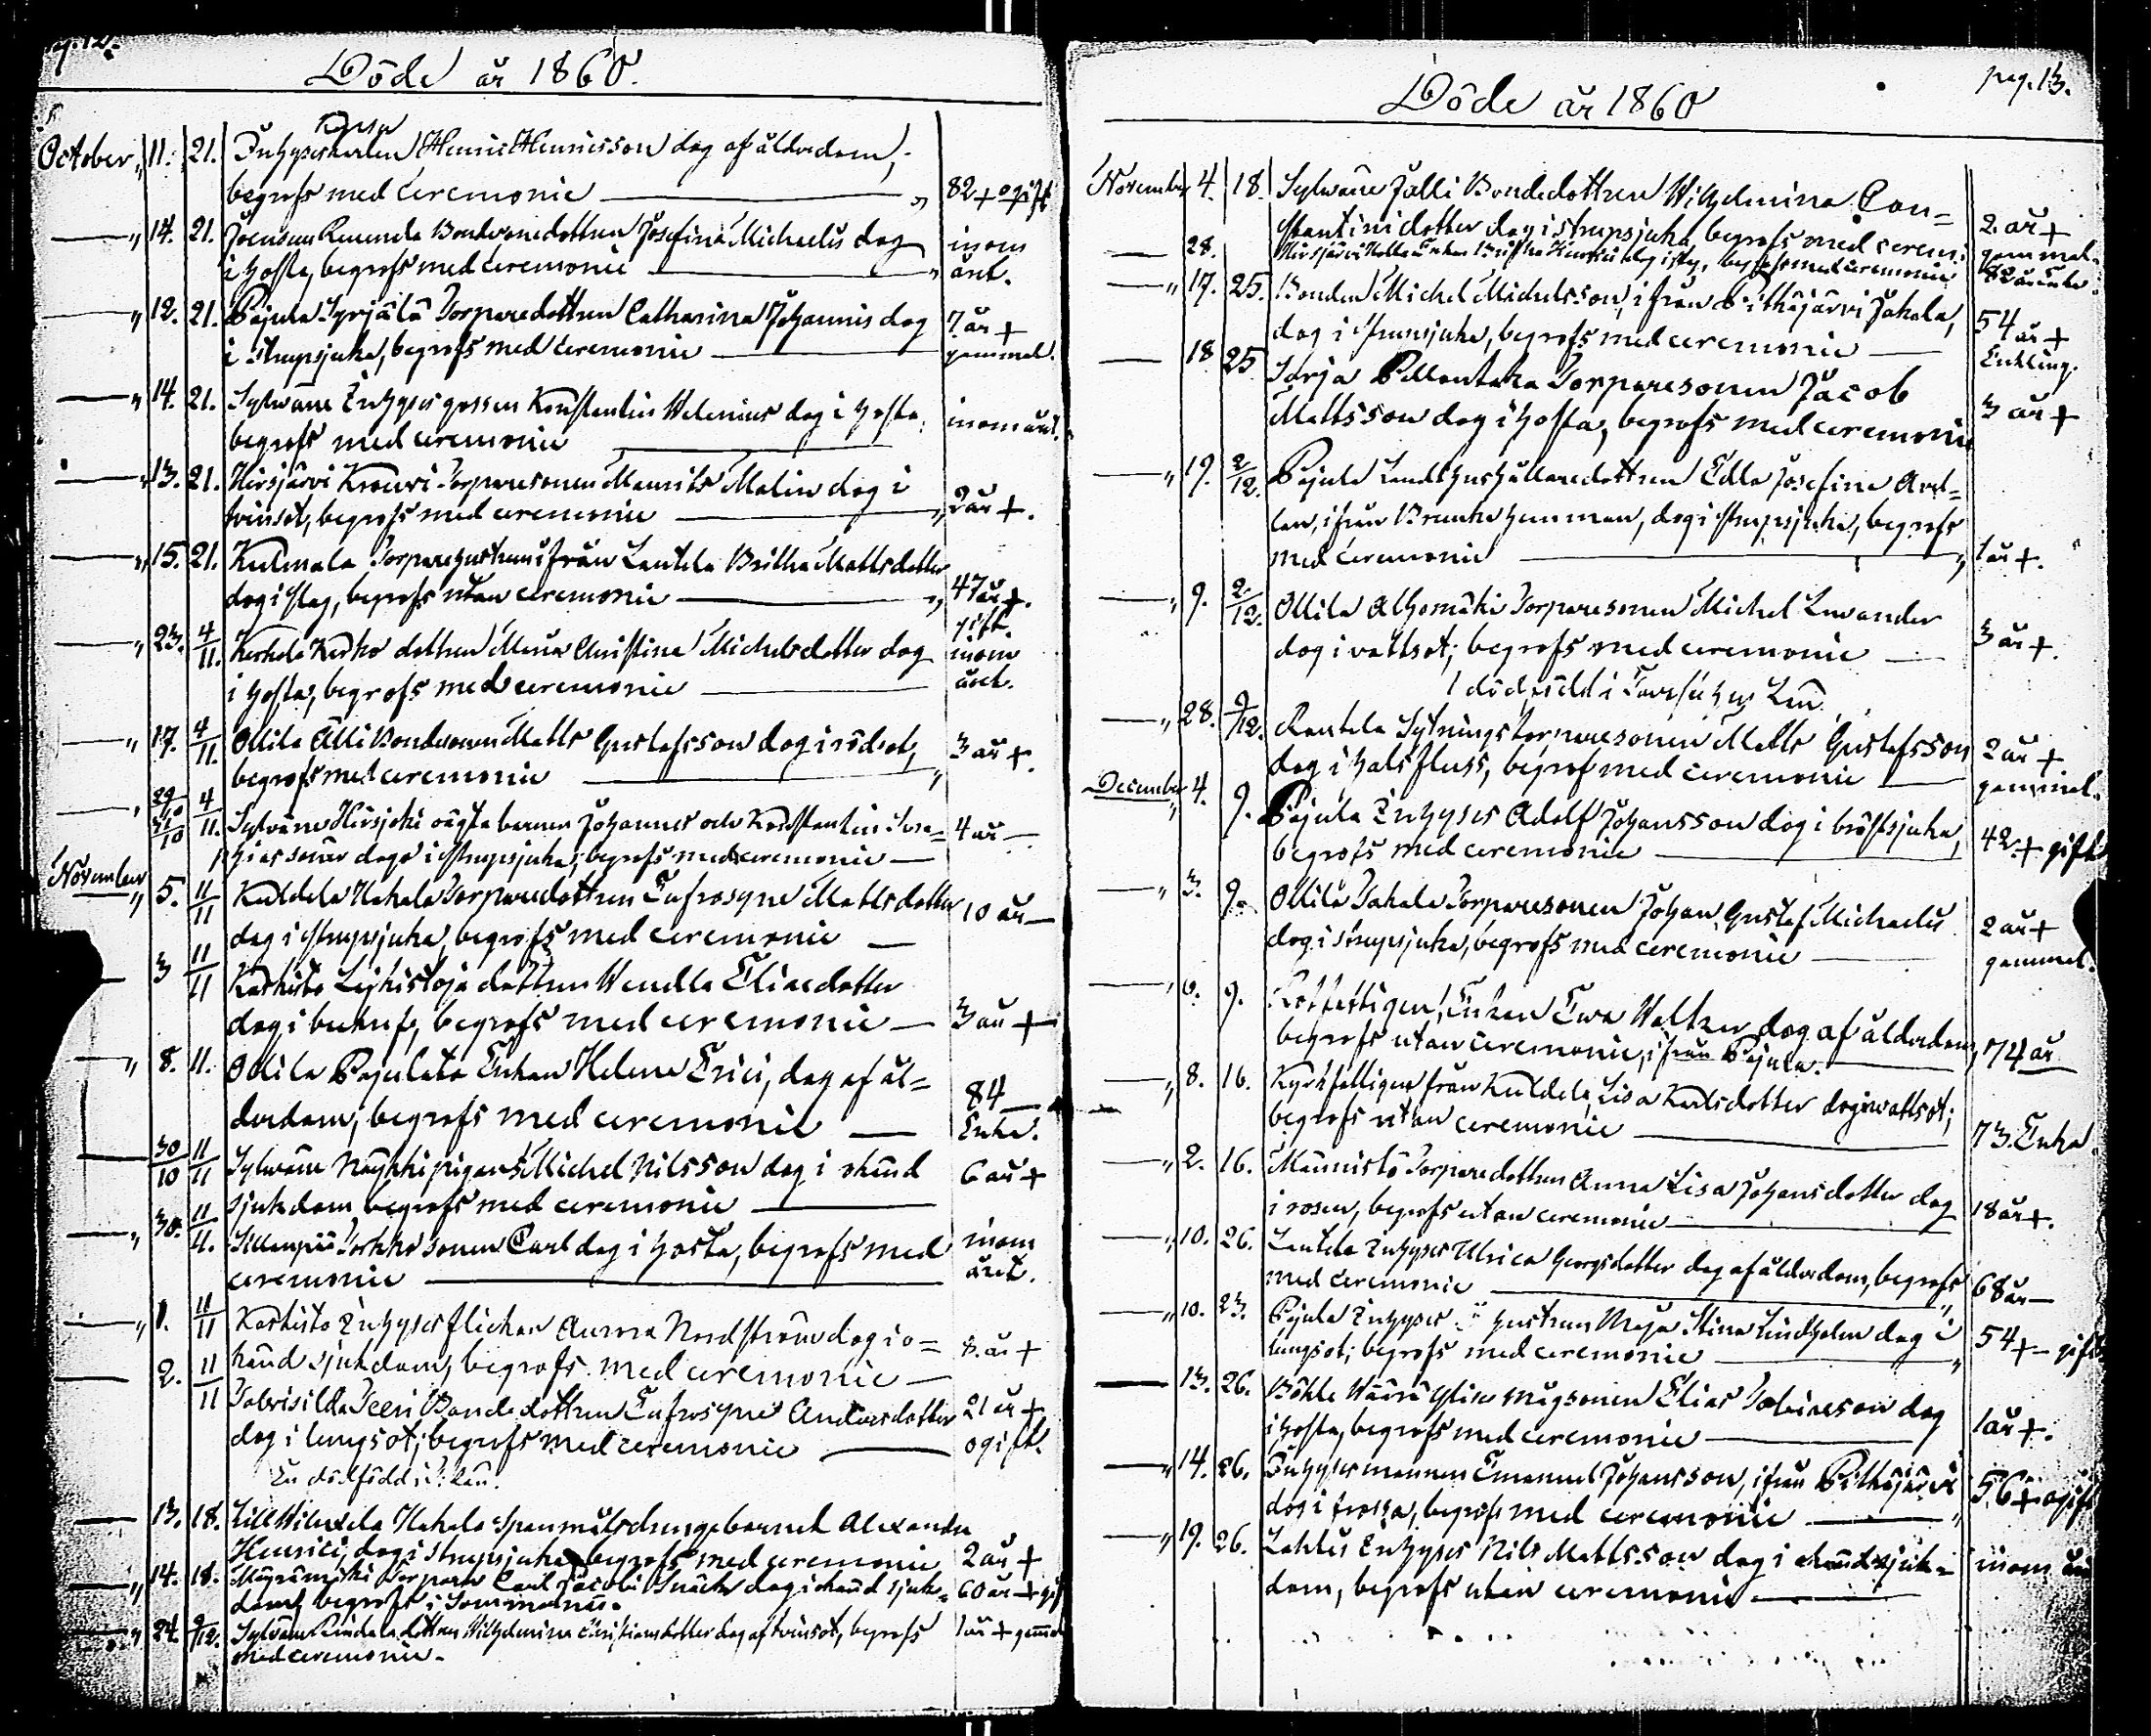 Döde år 1860.
October 11. 21. Inhyseskarlen Henric Henricsson dog af ålderdom,
begrofs med Ceremonie 82 + ogift
" 14. 21. Bondesonedottren Josefina Michaelis dog inom
i hosta, begrofs med Ceremonie året.
" 12. 21. Pajula Syrjälä Torparedottren Catharina Johannis dog 7 år +
i strupsjuka, begrofs med Ceremonie gammal.
" 14. 21. Sylväne Inhyses gossen Konstantin Helenius dog i hosta, inom året.
begrofs med ceremonie
" 13. 21. Hirsjärvi Krouvi Torparesonen Maurits Malin dog i
tvinsot, begrofs med ceremonie 2 år +.
" 15. 21. Kulmala Torparehustrun ifrån Lautela Britha Mattsdotter
dog i slag, begrofs utan ceremonie 47 år +.
gift.
" 23. 4/11. dottren Maria Christina Michelsdotter dog inom
i hosta, begrofs med ceremonie året.
" 17. 4/11. Ollila Älli Bondesonen Matts Gustafsson dog i rödsot, 3 år +.
begrofs med ceremonie
" 29/10 31/10 4/11. Sylväne Hirsjoki oägta barnen Johannes och Konstantin 4 år
söner dogo i strupsjuka, begrofs med ceremonie
November " 5. 11/11 Kuldela Uhala Torparedottren Eufrosyne Mattsdotter 10 år
dog i strupsjuka, begrofs med ceremonie
3 11/11 Karhisto Leikistoja dottren Wendla Eliædotter
dog i, begrofs med ceremonie 3 år +
" 8. 11. Ollila Pajulata Enkan Helena Erici, dog af ål=
derdom, begrofs med ceremonie 84
Enka.
30/10 11/11 Sylväne Näykki pigans Michel Nilsson dog i okänd 6 år +
sjukdom, begrofs med ceremonie
" 30. 11/11. Torkko sonen Carl dog i hosta, begrofs med inom
ceremonie året.
" 1. 11/11 Karhisto Inhyses flickan Anna Nordström dog i o= 3. år +
känd sjukdom, begrofs med ceremonie
2. 11/11 Teeri Bondedottren Eufrosyne Andersdotter 21 år +
dog i lungsot, begrofs med ceremonie ogift.
En dödfödd i T. län.
13. 18. Uhala Spanmåls barnet Alexandra
Henrici, dog i strupsjuka, begrofs med ceremonie 2 år +
" 14. 18. Torparen Carl Jacobi dog i okänd sjuk= 60 år + gift
dom, begrofs i Sommarnäs.
" 24. 9/12. Sylväne dottren Wilhelmina Christiansdotter dog af tvinsot, begrofs 1 år + gammal
med ceremonie.
pag. 13.
Döde år 1860
November 4. 18. Sylväne Jalli Bondedottren Wilhelmina Con=
stantinidotter dog i strupsjuka, begrofs med cerem. 2. år +
gammal.
28. Hirsjärvi Enkan Britha Henrici dog i slag, begrofs med ceremonie 82 år Enka.
" 17. 25. Bonden Michel Michelsson, ifrån Pithäjärvi Jakala, 54 år +
dog i strupsjuka, begrofs med ceremonie Enkling.
18 25 Torparesonen Jacob
Mattsson dog i hosta, begrofs med ceremonie 3 år +
" 19. 2/12. Pajula Landthushållaredottren Edla Josefina
ifrån hemman, dog i strupsjuka, begrofs
med Ceremonie 1 år +.
" 9. 2/12. Ollila Alhomäki Torparesonen Michel Levander
dog i vattsot; begrofs med ceremonie 3 år +.
1 dödfödd i Län
" 28. 9/12. Rautela Sytningstorparesonen Matts Gustafsson 2 år +
dog i halsfluss, begrof med ceremonie gammal.
December " 4. 9. Pajula Inhyses Adolf Johansson dog i bröstsjuka, 42 + gift
begrofs med ceremonie
" 3. 9. Ollila Jakala Torparesonen Johan Gustaf Michaelis 2 år +
dog i strupsjuka, begrofs med ceremonie gammal.
" 6. 9. Rotfattigen, Enkan Ewa Walter dog af ålderdom, 74 år
begrofs utan ceremonie, ifrån Pajula.
" 8. 16. Kyrkfattigen från Kuldela, Lisa Karlsdotter dog i wattsot;
begrofs utan ceremonie 73. Enka.
" 2. 16. Männistö Torparedottren Anna Lisa Johansdotter dog
i rosen, begrofs utan ceremonie 18 år +.
" 10. 26. Lautela Inhyses Ulrica Georgsdotter dog af ålderdom, begrofs
med ceremonie 68 år
" 10. 23. Pajula Inhyses hustrun Maja Stina Lindholm dog i
lungsot; begrofs med ceremonie 54 + gift
13. 26. mågsonen Elias Tobiasson dog
i hosta, begrofs med ceremonie 1 år +.
" 14. 26. Inhysesmannen Emanuel Johansson, ifrån Pithäjärvi
dog i frossa, begrofs med ceremonie 56 + ogift
" 19. 26. Inhyses Nils Mattsson dog i okänd sjuk=
dom, begrofs utan ceremonie inom